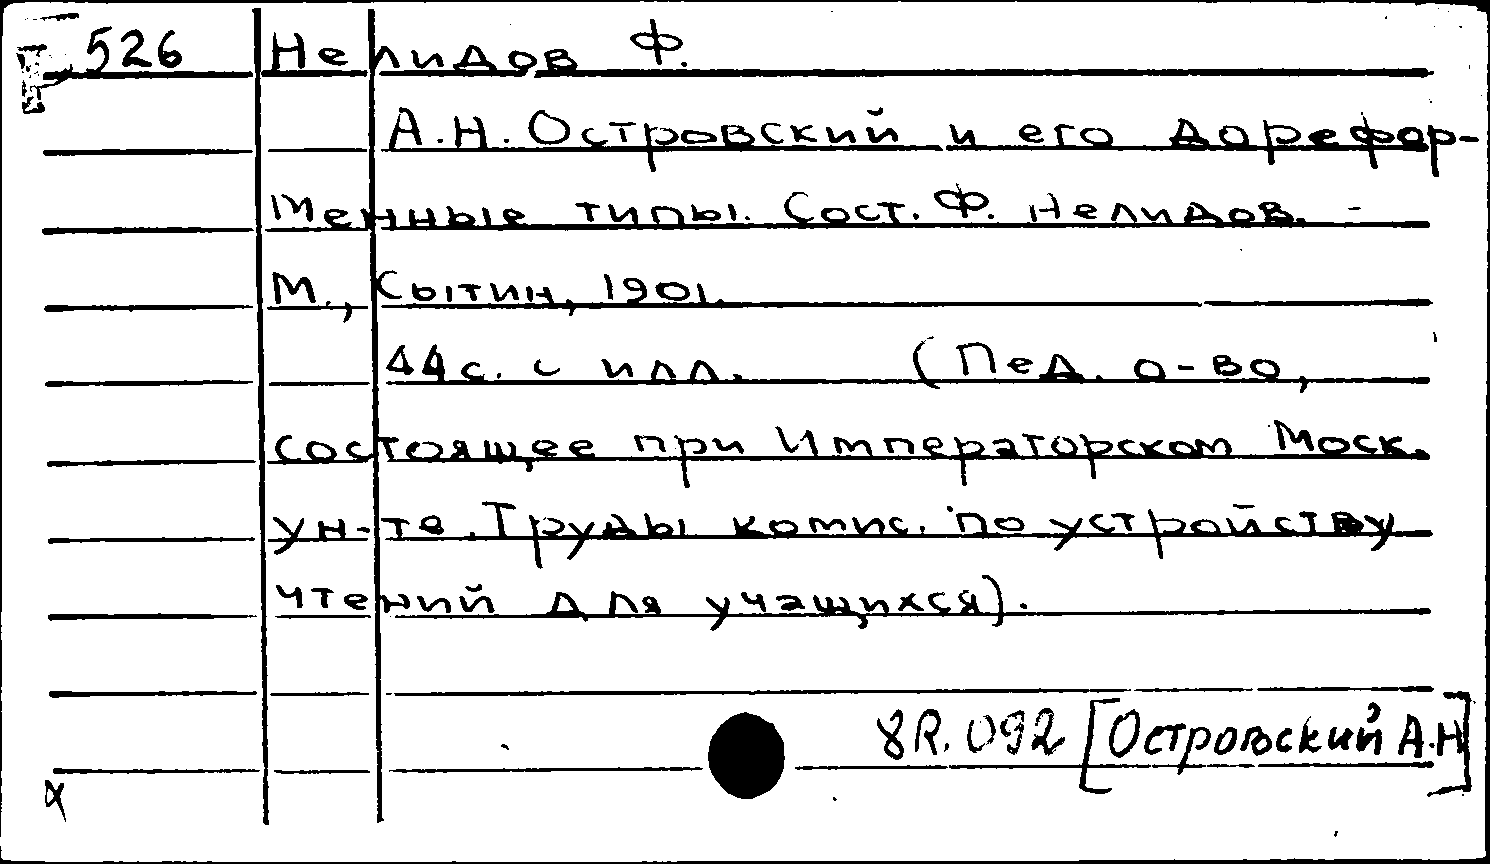 526 Нелидов Ф.
А.Н. Островский и его дорефор-
менные типы. Сост. Ф. Нелидов. -
М., Сытин, 1901.
44с. с илл. (Пед. о-во,
состоящее при Императорском Моск.
ун-те. Труды комис. по устройству
чтений для учащихся).
8R.092 [Островский А.Н]